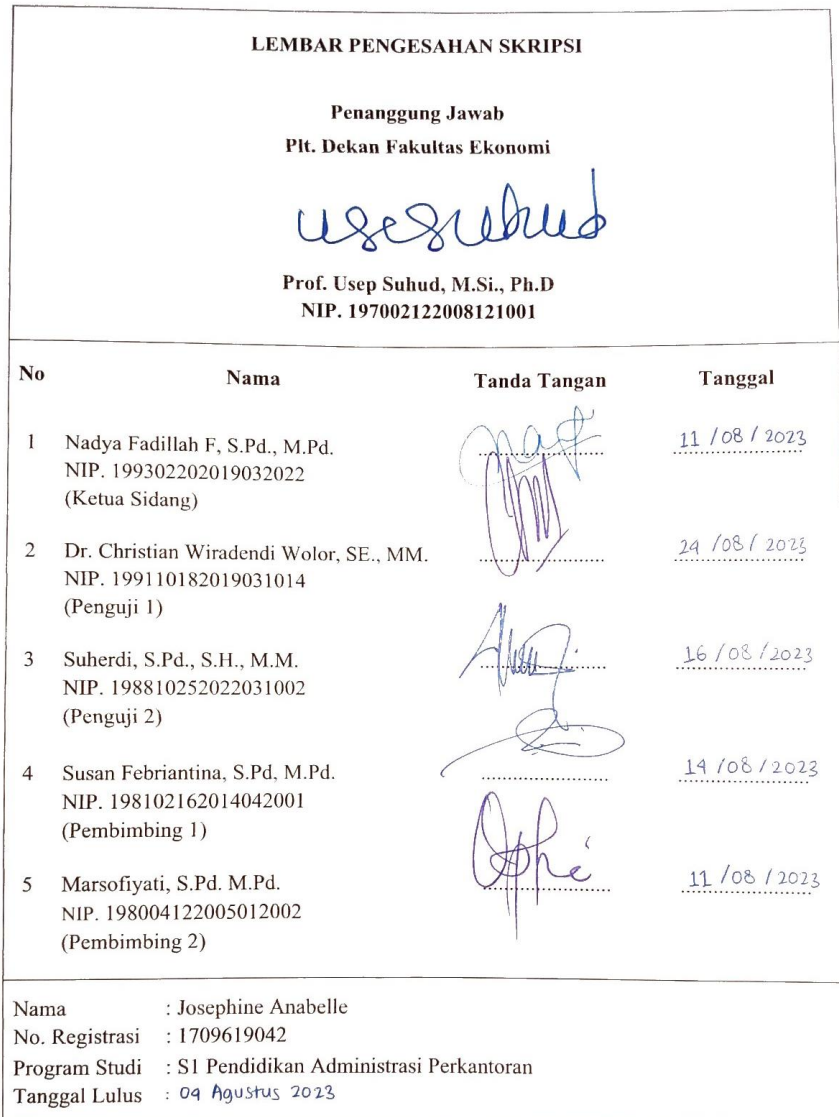 LEMBAR PENGESAHAN SKRIPSI
Penanggung Jawab
Plt. Dekan Fakultas Ekonomi
Prof. Usep Suhud, M.Si., Ph.D
NIP. 197002122008121001
No Nama Tanda Tangan Tanggal
1 Nadya Fadillah F, S.Pd., M.Pd. 11 / 08 / 2023
NIP. 199302202019032022
(Ketua Sidang)
2 Dr. Christian Wiradendi Wolor, SE., MM. 24 / 08 / 2023
NIP. 199110182019031014
(Penguji 1)
3 Suherdi, S.Pd., S.H., M.M. 16 / 08 / 2023
NIP. 198810252022031002
(Penguji 2)
4 Susan Febriantina, S.Pd, M.Pd. 14 / 08 / 2023
NIP. 198102162014042001
(Pembimbing 1)
5 Marsofiyati, S.Pd. M.Pd. 11 / 08 / 2023
NIP. 198004122005012002
(Pembimbing 2)
Nama : Josephine Anabelle
No. Registrasi : 1709619042
Program Studi : S1 Pendidikan Administrasi Perkantoran
Tanggal Lulus : 04 Agustus 2023